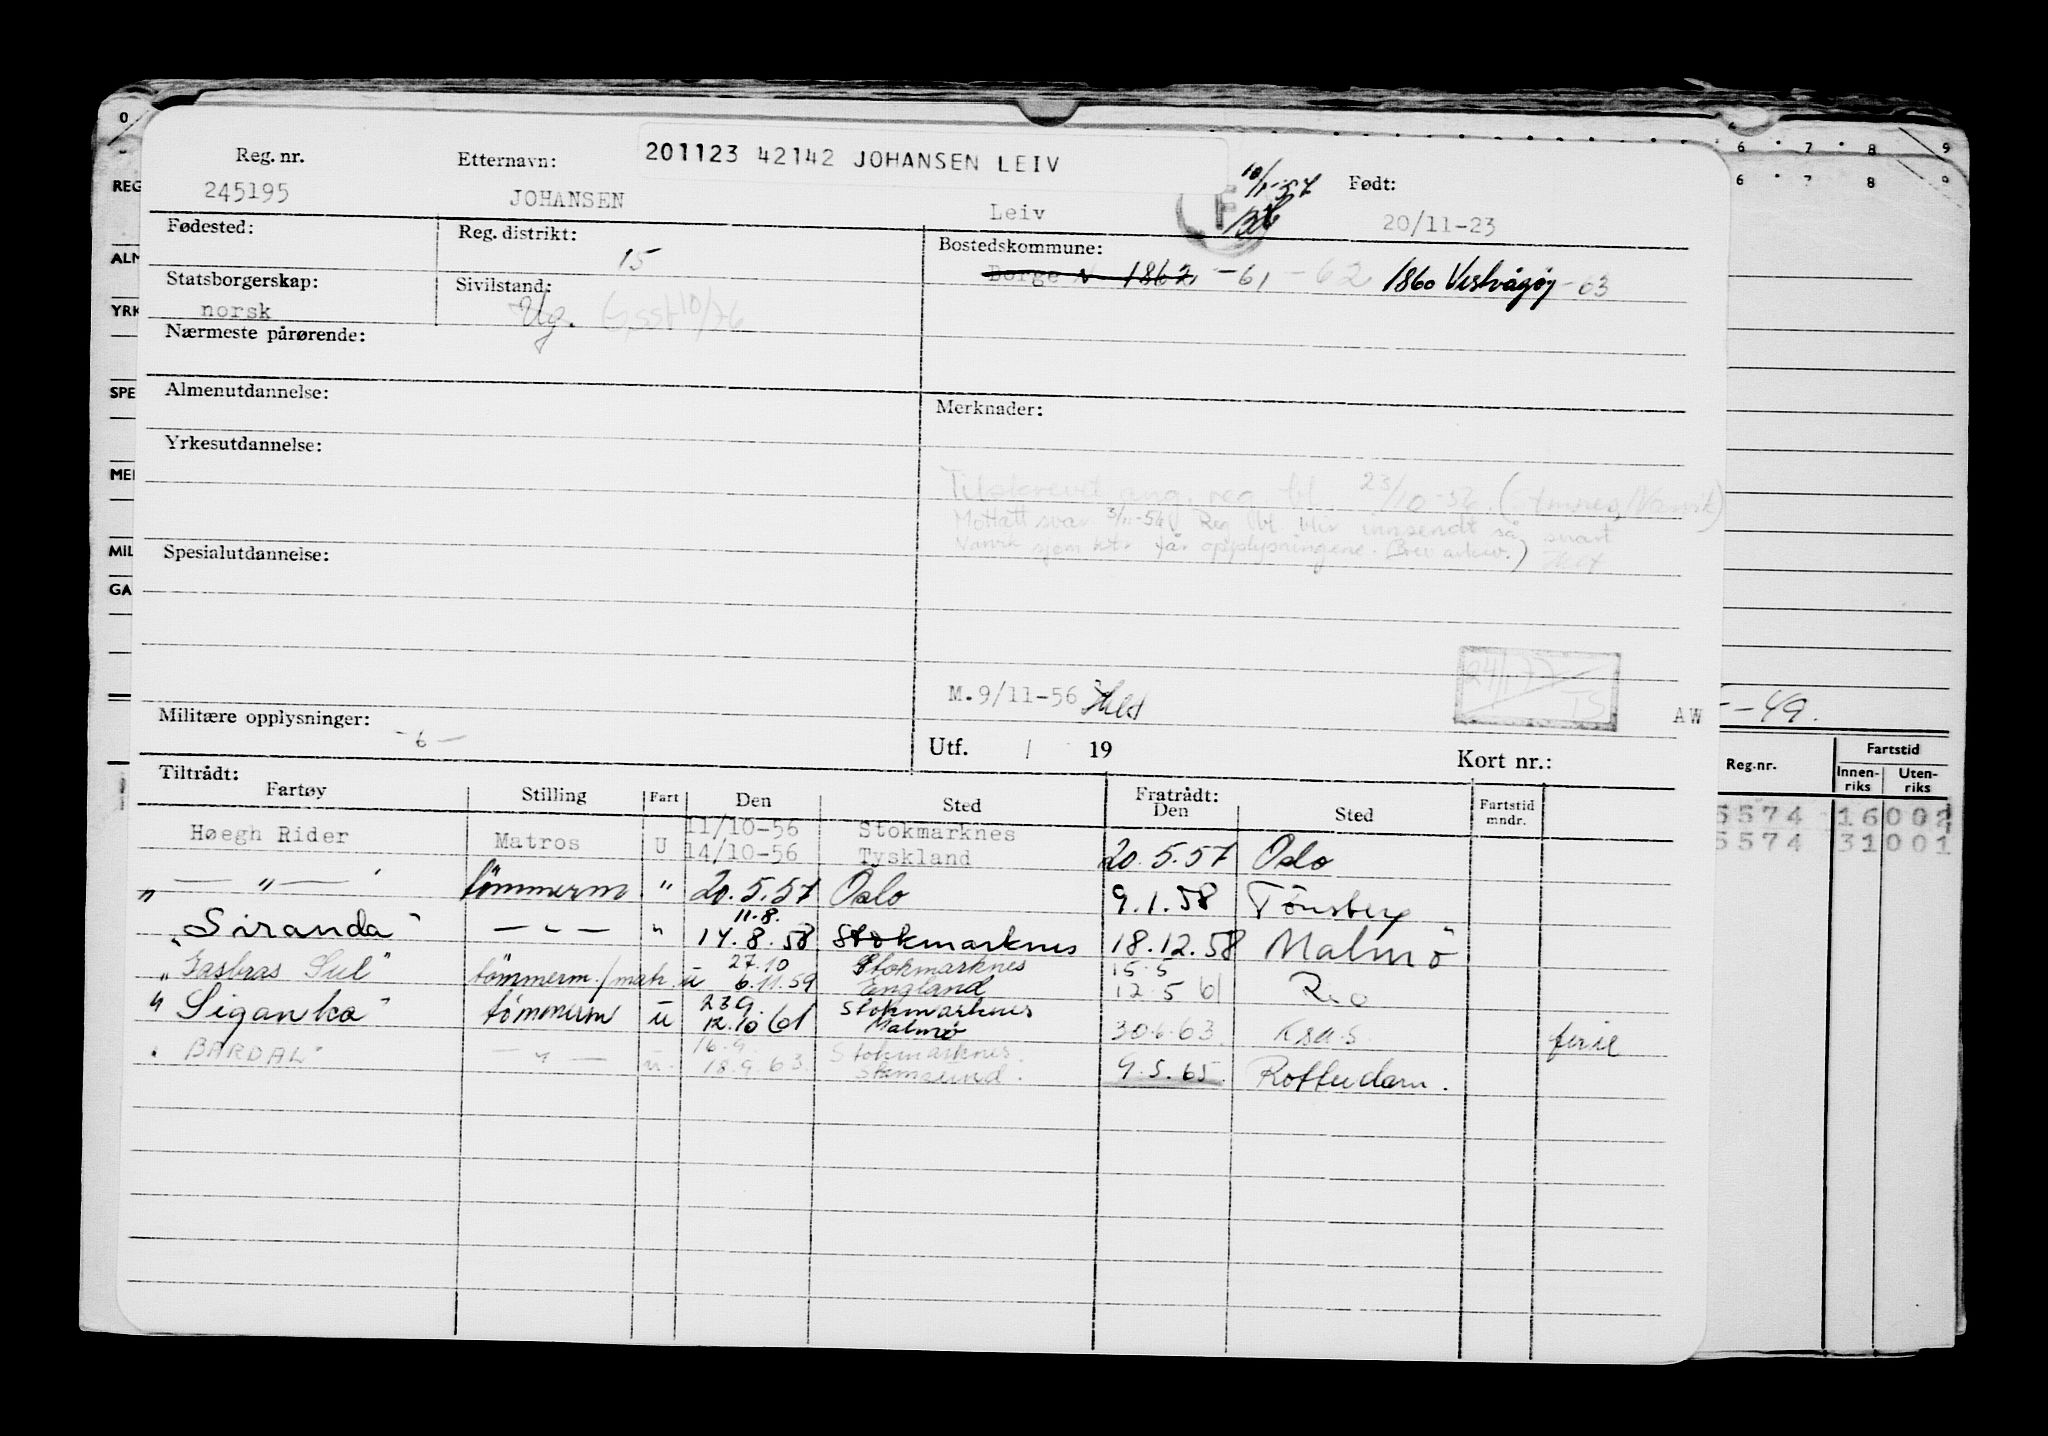 201123 42142 JOHANSEN LEIV
Reg. nr. Etternavn: Født:
245195 JOHANSEN Leiv 20/11-23
10/1-57
Fødested: Reg. distrikt: 15 Bostedskommune:
Borge N 1862 -61 -62 1860 Vestvågøy -63
Statsborgerskap: Sivilstand:
norsk Ug.
Nærmeste pårørende:
Almenutdannelse: Merknader:
Yrkesutdannelse:
Tilskrevet ang. reg. bl. 23/10-56.
Mottatt svar 3/11-56 Reg bl. blir innsendt så snart
sjøm ktr får opplysningene. (Brev arkiv.)
Spesialutdannelse:
M.9/11-56
24/1-77
TS
AW
Militære opplysninger:
-6-
Utf. / 19 Kort nr.:
Tiltrådt: Fratrådt:
Fartøy Stilling Fart Den Sted Den Sted Fartstid mndr.
Høegh Rider Matros U 11/10-56 Stokmarknes
14/10-56 Tyskland 20.5.57 Oslo
— " — tömmerm " 20.5.57 Oslo 9.1.58 Tönsberg
11.8.
"Siranda" — " — " 14.8.58 Stokmarknes 18.12.58 Malmö
27.10 Stokmarknes 15.5
"Jasbras Sul" tömmerm./matr. u 6.11.59 England 12.5 61 Rio
23.9. Stokmarknes
"Siganka" tömmerm u 12.10 61 Malmö 30.6.63 ferie
16.9. Stokmarknes.
"BARDAL" — " — u. 18.9.63. 9.5.65. Rotterdam.
0 6 7 8 9
6 7 8 9
REG
ALM
YRK
SPE
MIL
GA
- -49.
Reg.nr. Fartstid
Innen-riks Uten-riks
5574 16 002
5574 31 001